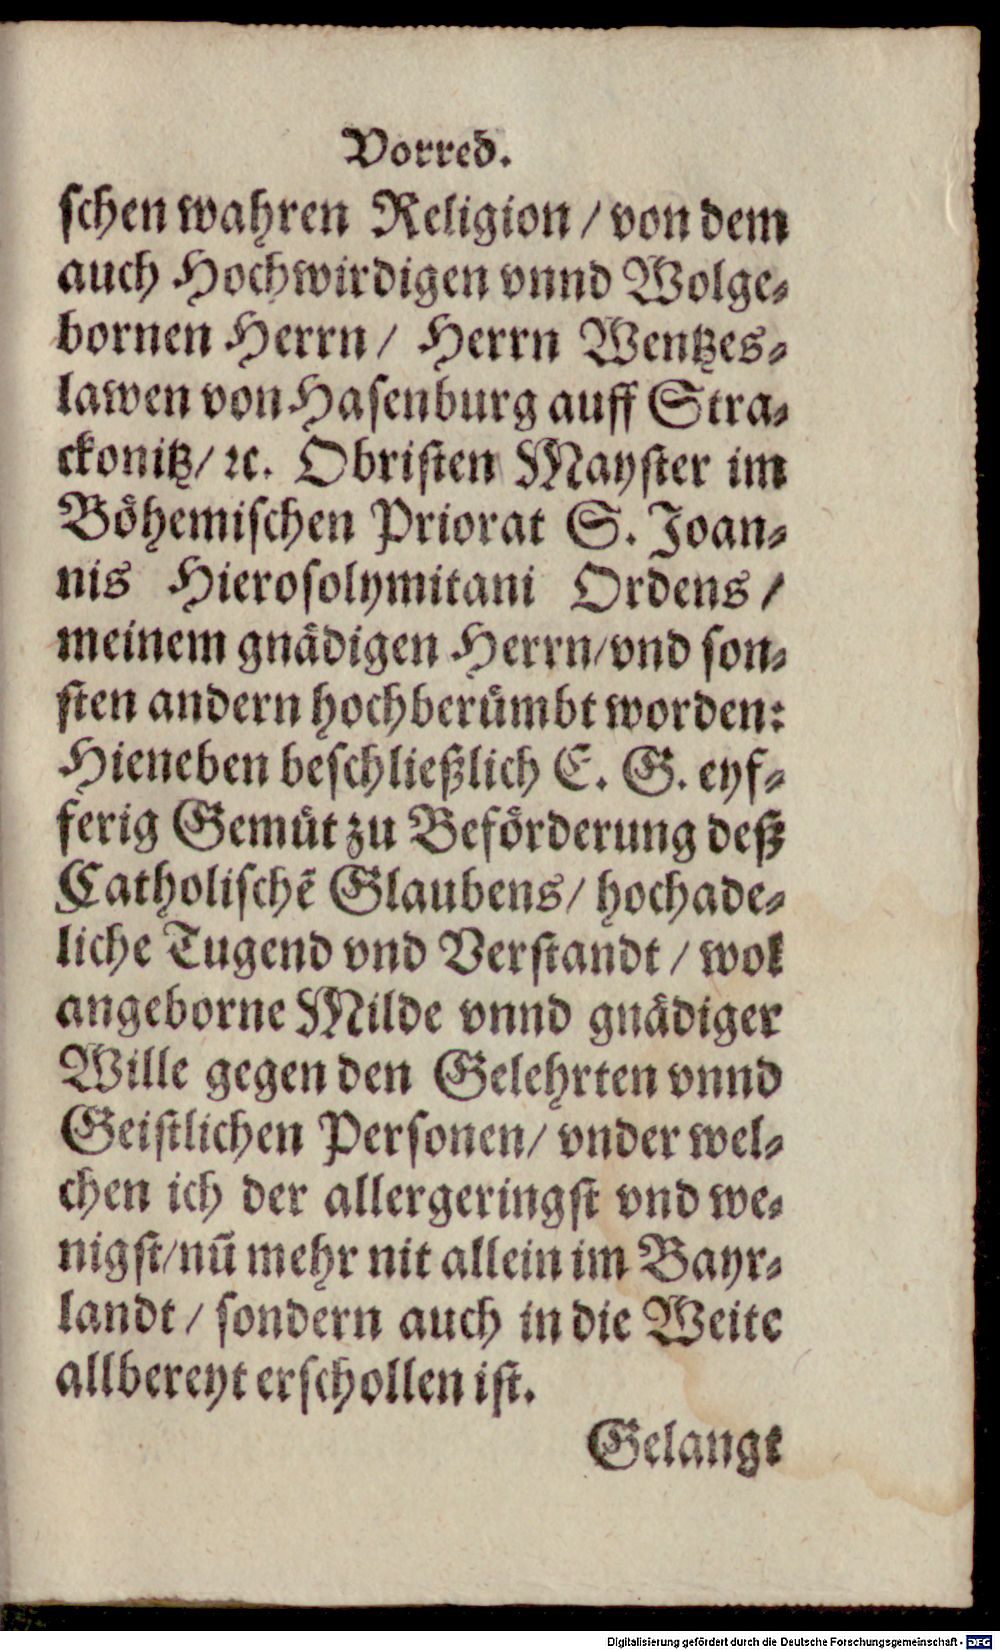 Vorred.
schen wahren Religion / von dem
auch Hochwirdigen vnnd Wolge⸗
bornen Herrn / Herrn Wentzes⸗
lawen von Hasenburg auff Stra⸗
ckonitz / ꝛc. Obristen Mayster im
Böhemischen Priorat S. Joan⸗
nis Hierosolymitani Ordens /
meinem gnädigen Herrn / vnd son⸗
sten andern hochberümbt worden:
Hieneben beschließlich E. G. eyf⸗
ferig Gemüt zu Beförderung deß
Catholischẽ Glaubens / hochade⸗
liche Tugend vnd Verstandt / wol
angeborne Milde vnnd gnädiger
Wille gegen den Gelehrten vnnd
Geistlichen Personen / vnder wel⸗
chen ich der allergeringst vnd we⸗
nigst / nũ mehr nit allein im Bayr⸗
landt / sondern auch in die Weite
allbereyt erschollen ist.
Gelangt
Digitalisierung gefördert durch die Deutsche Forschungsgemeinschaft - DFG